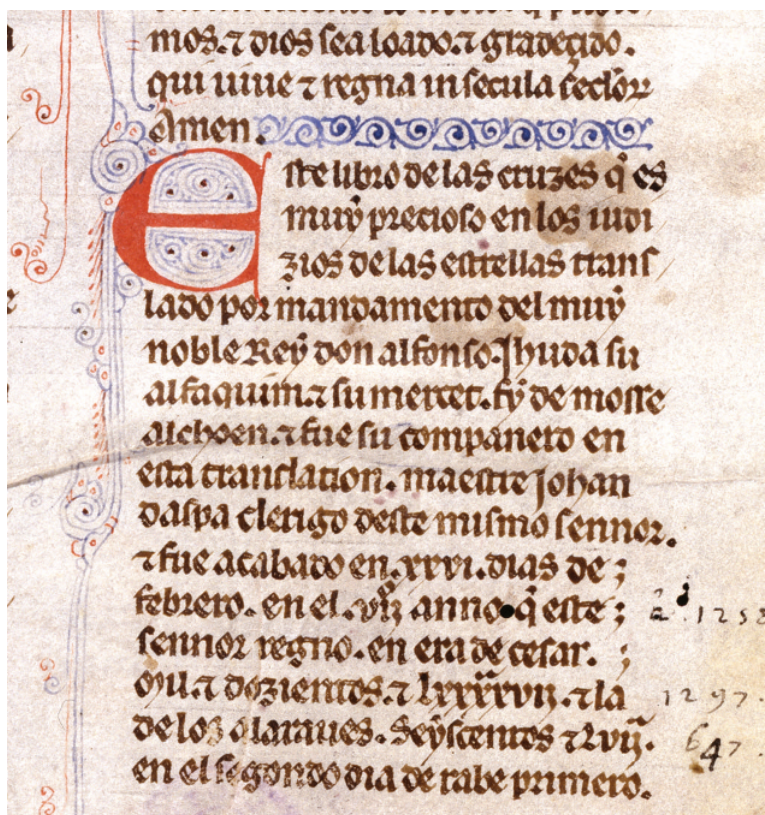 mos. ⁊ dios sea loado. ⁊ gradeçido.
qui uiue ⁊ regna in secula seclor
Amen.
Este libro de las cruzes q̄ es
muẏ precioso en los iudi
zios de las estrellas trans
lado por mandamento del muẏ
noble Reẏ don alfonso. Jhuda su
alfaquim. ⁊ su mercet. fẏ de mosse
alchoen. ⁊ fue su companero en
esta translation. maestre Johan
daspa clerigo deste mismo sennor.
⁊ fue acabado en. xxvi. dias de ;
febrero. en el. vij anno q̄ este ; 1258
sennor regno. en era de cesar. ;
Mil. ⁊ dozientos. ⁊ lxxxxvij. ⁊ la 1297.
de los alaraues. Seẏscentos ⁊ Lvij. 647.
en el segondo dia de rabe primero.